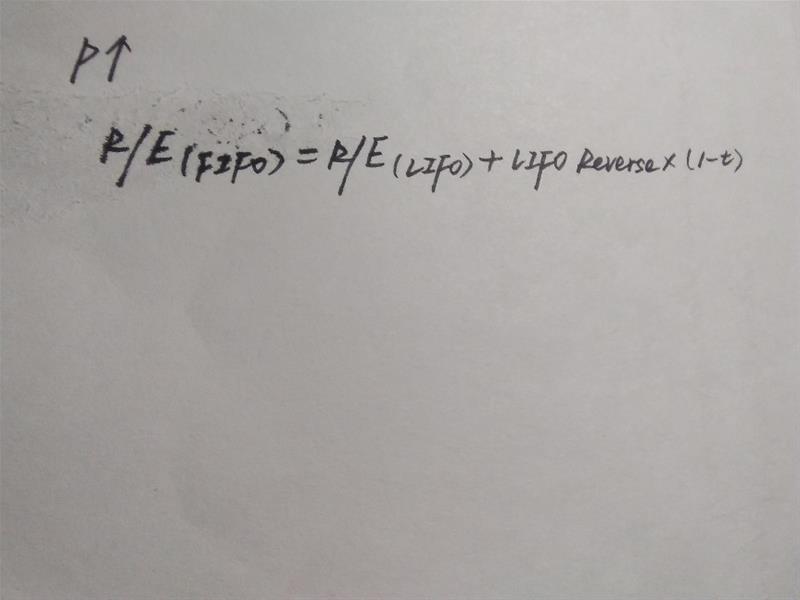 P↑
R/E(FIFO) = R/E(LIFO) + LIFO Reverse × (1-t)